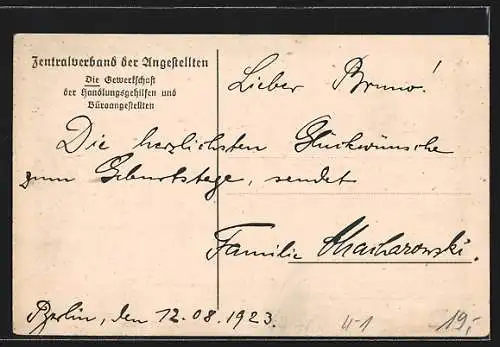 Zentralverband der Angestellten
Die Gewerkschaft
der Handlungsgehilfen und
Büroangestellten
Lieber Bruno!
Die herzlichsten Glückwünsche
zum Geburtstage, sendet
Familie
Berlin, den 12.08.1923.
4-1
19,-